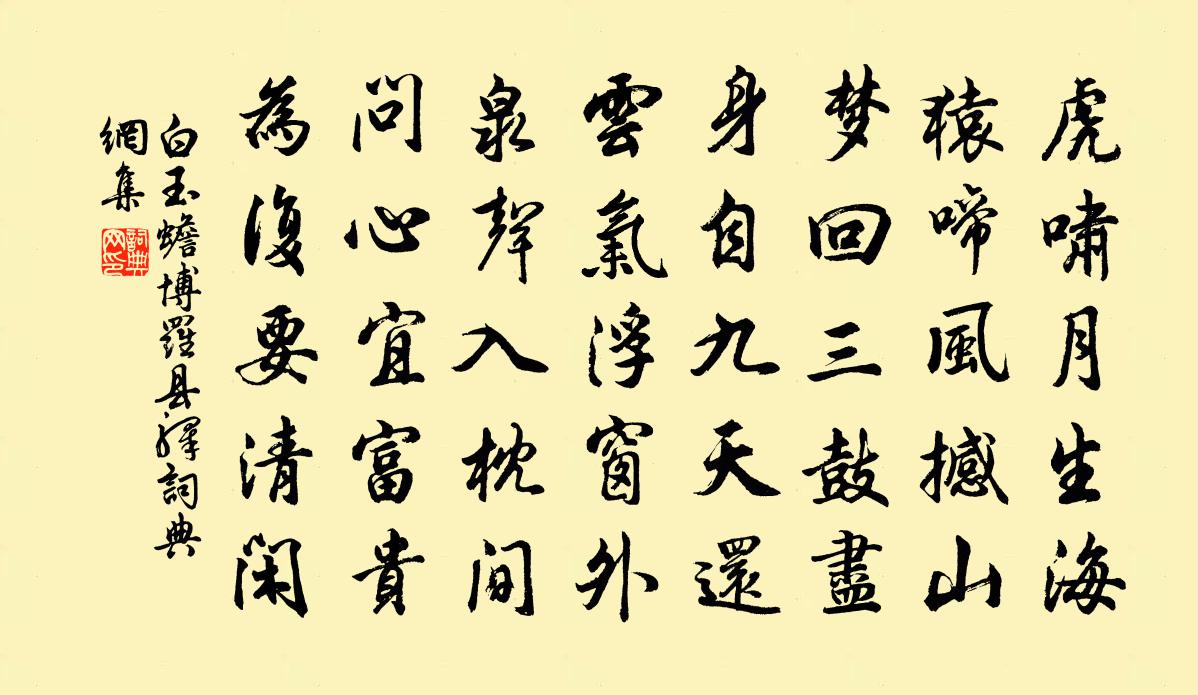 虎嘯月生海
猿啼風撼山
梦回三鼓盡
身自九天還
雲氣浮窗外
泉聲入枕间
問心宜富貴
為復要清閑
白玉蟾博羅县驛詞典
網集
詞典
网印